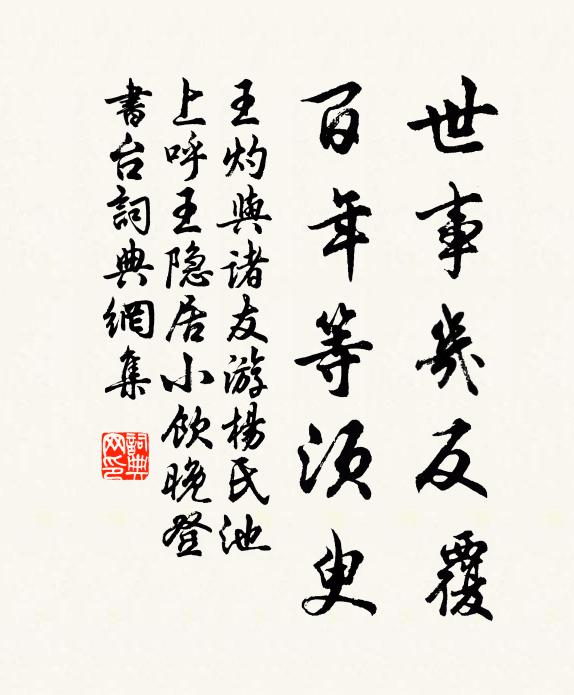 世事幾反覆
百年等須臾
王灼與諸友游楊氏池
上呼王隐居小飲晚登
書台詞典網集
詞典
网印